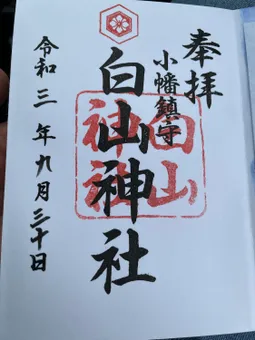 奉拝
小幡鎮守
白山神社
白山神社
令和三年九月三十日